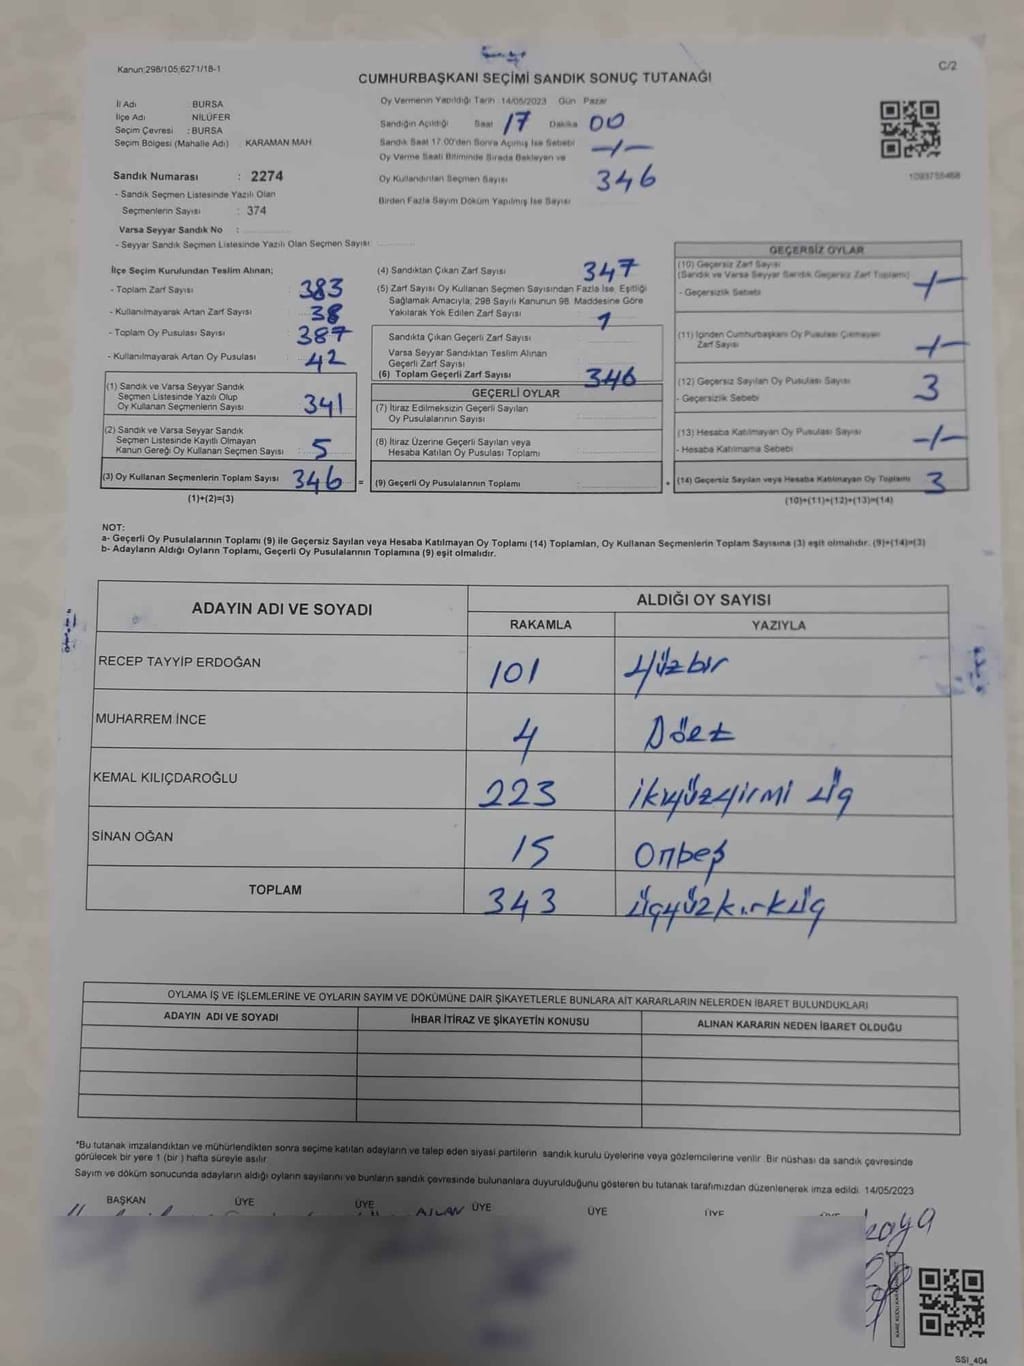 Kanun:298/105;6271/18-1
C/2
CUMHURBAŞKANI SEÇİMİ SANDIK SONUÇ TUTANAĞI
İl Adı BURSA
İlçe Adı NİLÜFER
Seçim Çevresi : BURSA
Seçim Bölgesi (Mahalle Adı) KARAMAN MAH
Sandık Numarası : 2274
- Sandık Seçmen Listesinde Yazılı Olan
Seçmenlerin Sayısı : 374
Varsa Seyyar Sandık No :
- Seyyar Sandık Seçmen Listesinde Yazılı Olan Seçmen Sayısı
Oy Vermenin Yapıldığı Tarih 14/05/2023 Gün Pazar
Sandığın Açıldığı Saat 17 Dakika 00
Sandık Saat 17.00'den Sonra Açılmış İse Sebebi -/-
Oy Verme Saati Bitiminde Sırada Bekleyen ve
Oy Kullandırılan Seçmen Sayısı 346
Birden Fazla Sayım Döküm Yapılmış İse Sayısı
1093755468
İlçe Seçim Kurulundan Teslim Alınan;
- Toplam Zarf Sayısı 383
- Kullanılmayarak Artan Zarf Sayısı 38
- Toplam Oy Pusulası Sayısı 387
- Kullanılmayarak Artan Oy Pusulası 42
(1) Sandık ve Varsa Seyyar Sandık
Seçmen Listesinde Yazılı Olup
Oy Kullanan Seçmenlerin Sayısı 341
(2) Sandık ve Varsa Seyyar Sandık
Seçmen Listesinde Kayıtlı Olmayan
Kanun Gereği Oy Kullanan Seçmen Sayısı 5
(3) Oy Kullanan Seçmenlerin Toplam Sayısı 346 =
(1)+(2)=(3)
(4) Sandıktan Çıkan Zarf Sayısı 347
(5) Zarf Sayısı Oy Kullanan Seçmen Sayısından Fazla İse, Eşitliği
Sağlamak Amacıyla; 298 Sayılı Kanunun 98. Maddesine Göre
Yakılarak Yok Edilen Zarf Sayısı 1
Sandıkta Çıkan Geçerli Zarf Sayısı
Varsa Seyyar Sandıktan Teslim Alınan
Geçerli Zarf Sayısı
(6) Toplam Geçerli Zarf Sayısı 346
GEÇERLİ OYLAR
(7) İtiraz Edilmeksizin Geçerli Sayılan
Oy Pusulalarının Sayısı
(8) İtiraz Üzerine Geçerli Sayılan veya
Hesaba Katılan Oy Pusulası Toplamı
(9) Geçerli Oy Pusulalarının Toplamı +
GEÇERSİZ OYLAR
(10) Geçersiz Zarf Sayısı
(Sandık ve Varsa Seyyar Sandık Geçersiz Zarf Toplamı) -/-
- Geçersizlik Sebebi
(11) İçinden Cumhurbaşkanı Oy Pusulası Çıkmayan
Zarf Sayısı -/-
(12) Geçersiz Sayılan Oy Pusulası Sayısı 3
- Geçersizlik Sebebi
(13) Hesaba Katılmayan Oy Pusulası Sayısı -/-
- Hesaba Katılmama Sebebi
(14) Geçersiz Sayılan veya Hesaba Katılmayan Oy Toplamı 3
(10)+(11)+(12)+(13)=(14)
NOT:
a- Geçerli Oy Pusulalarının Toplamı (9) ile Geçersiz Sayılan veya Hesaba Katılmayan Oy Toplamı (14) Toplamları, Oy Kullanan Seçmenlerin Toplam Sayısına (3) eşit olmalıdır. (9)+(14)=(3)
b- Adayların Aldığı Oyların Toplamı, Geçerli Oy Pusulalarının Toplamına (9) eşit olmalıdır.
ADAYIN ADI VE SOYADI
ALDIĞI OY SAYISI
RAKAMLA YAZIYLA
RECEP TAYYİP ERDOĞAN 101 Yüzbir
MUHARREM İNCE 4 Dört
KEMAL KILIÇDAROĞLU 223 ikiyüzyirmi üç
SİNAN OĞAN 15 Onbeş
TOPLAM 343 üçyüzkırküç
OYLAMA İŞ VE İŞLEMLERİNE VE OYLARIN SAYIM VE DÖKÜMÜNE DAİR ŞİKAYETLERLE BUNLARA AİT KARARLARIN NELERDEN İBARET BULUNDUKLARI
ADAYIN ADI VE SOYADI İHBAR İTİRAZ VE ŞİKAYETİN KONUSU ALINAN KARARIN NEDEN İBARET OLDUĞU
*Bu tutanak imzalandıktan ve mühürlendikten sonra seçime katılan adayların ve talep eden siyasi partilerin sandık kurulu üyelerine veya gözlemcilerine verilir. Bir nüshası da sandık çevresinde
görülecek bir yere 1 (bir) hafta süreyle asılır.
Sayım ve döküm sonucunda adayların aldığı oyların sayılarını ve bunların sandık çevresinde bulunanlara duyurulduğunu gösteren bu tutanak tarafımızdan düzenlenerek imza edildi. 14/05/2023
BAŞKAN ÜYE ÜYE ÜYE ÜYE ÜYE
SSI_404